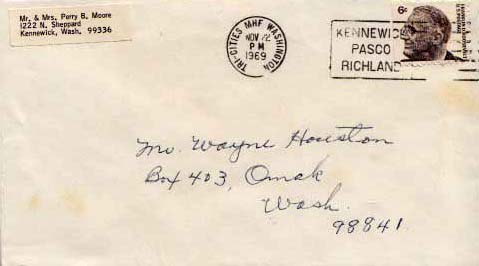 Mr. & Mrs. Perry B. Moore
1222 N. Sheppard
Kennewick, Wash. 99336
TRI-CITIES MHF WASHINGTON
NOV 12
PM
1969
KENNEWICK
PASCO
RICHLAND
6c
Mr. Wayne Houston
Box 403, Omak
Wash.
98841